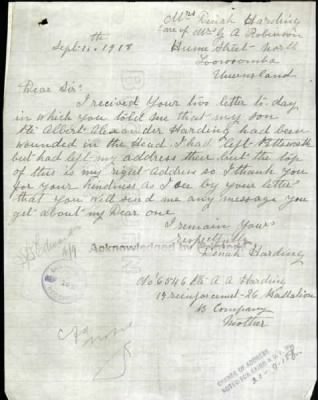 Mrs Dinah Harding
care of Mrs G A Robinson
Hume Street North
Toowoomba
Queensland
Sept 11th 1918
Dear Sir
I recived Your two letter to day
in which you told me that my son
Pte Albert Alexander Harding had been
wounded in the Head. I had left
but had left my address their but the top
of this is my right address so I thank you
for your kindness as I see by your letter
that You will send me any message you
get about my Dear one
I remain Yours
respectfully
Dinah Harding
Acknowledged by
No 6546 Pte A A Harding
reenforcement - 26 Battalion
B Company
Mother
CHANGE OF ADDRESS